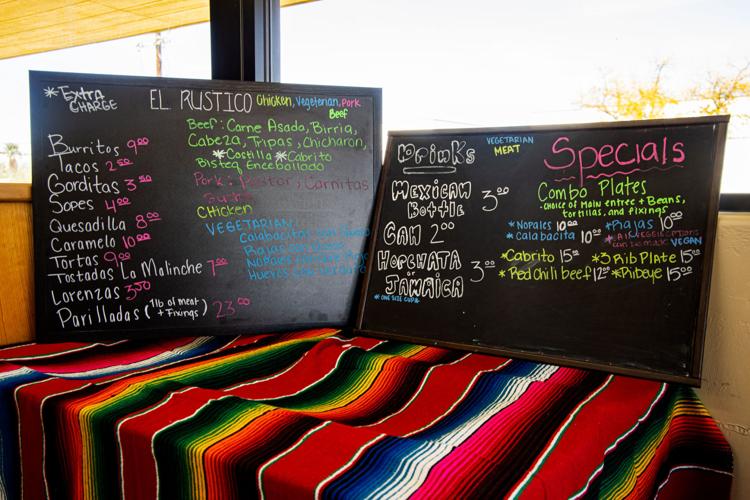 *Extra
CHARGE
EL RUSTICO Chicken, Vegetarian, Pork
Beef
Burritos 9.00
Tacos 2.50
Gorditas 3.50
Sopes 4.00
Quesadilla 8.00
Caramelo 10.00
Tortas 9.00
Tostadas La Malinche 7.00
Lorenzas 3.50
Parilladas (1lb of meat + Fixings) 23.00
Beef: Carne Asada, Birria,
Cabeza, Tripas, Chicharon,
*Costilla *Cabrito
Bisteq Encebollado
Pork: Pastor, Carnitas
CHICKEN
VEGETARIAN
Calabacitas con
Rajas con
Nopales
Huevos
Drinks
MEXICAN
Bottle 3.00
CAN 2.00
HORCHATA
or
JAMAICA 3.00
* ONE SIZE CUP *
VEGETARIAN
MEAT
Specials
Combo Plates
-CHOICE OF Main entree + Beans,
tortillas, and fixings
*Nopales 10.00 *Rajas 10.00
*Calabacita 10.00 *All veggie options
can be made VEGAN
*Cabrito 15.00 *3 Rib Plate 15.00
*Red Chili beef 12.00 *Ribeye 15.00